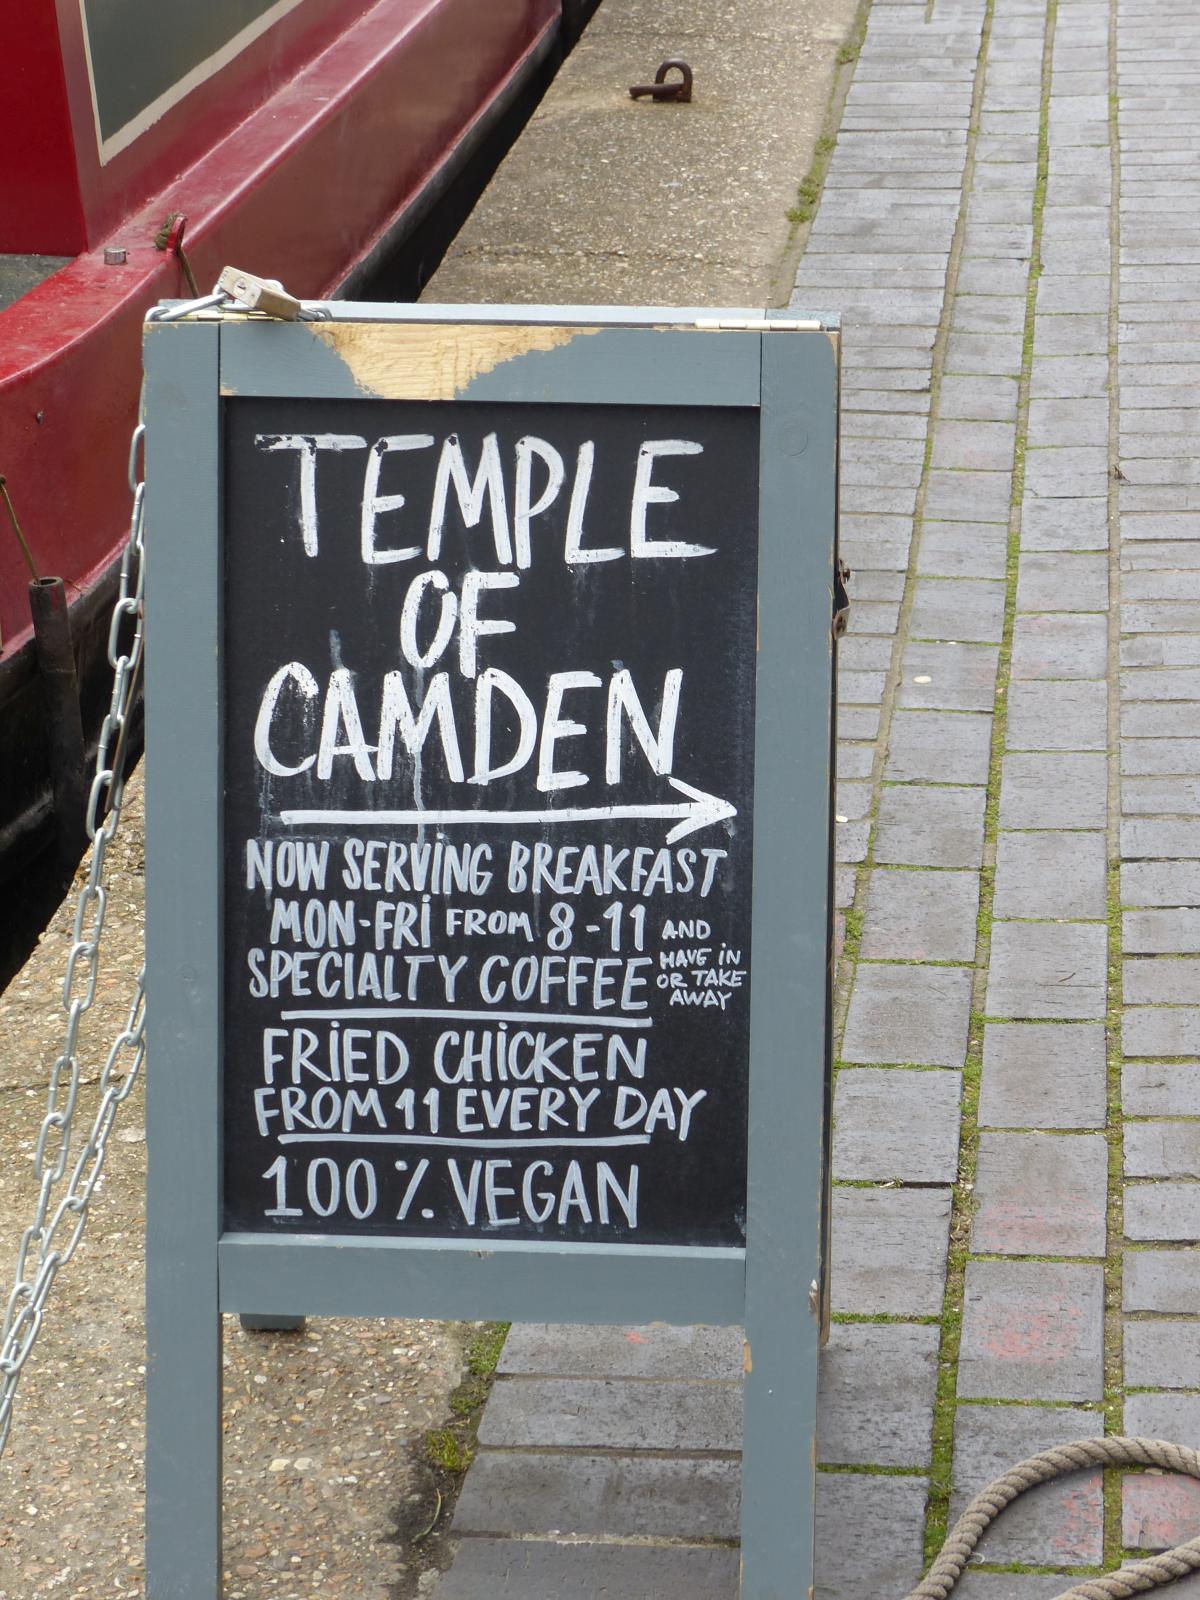 TEMPLE
OF
CAMDEN
NOW SERVING BREAKFAST
MON-FRI FROM 8-11 AND
SPECIALTY COFFEE HAVE IN
OR TAKE
AWAY
FRIED CHICKEN
FROM 11 EVERY DAY
100% VEGAN